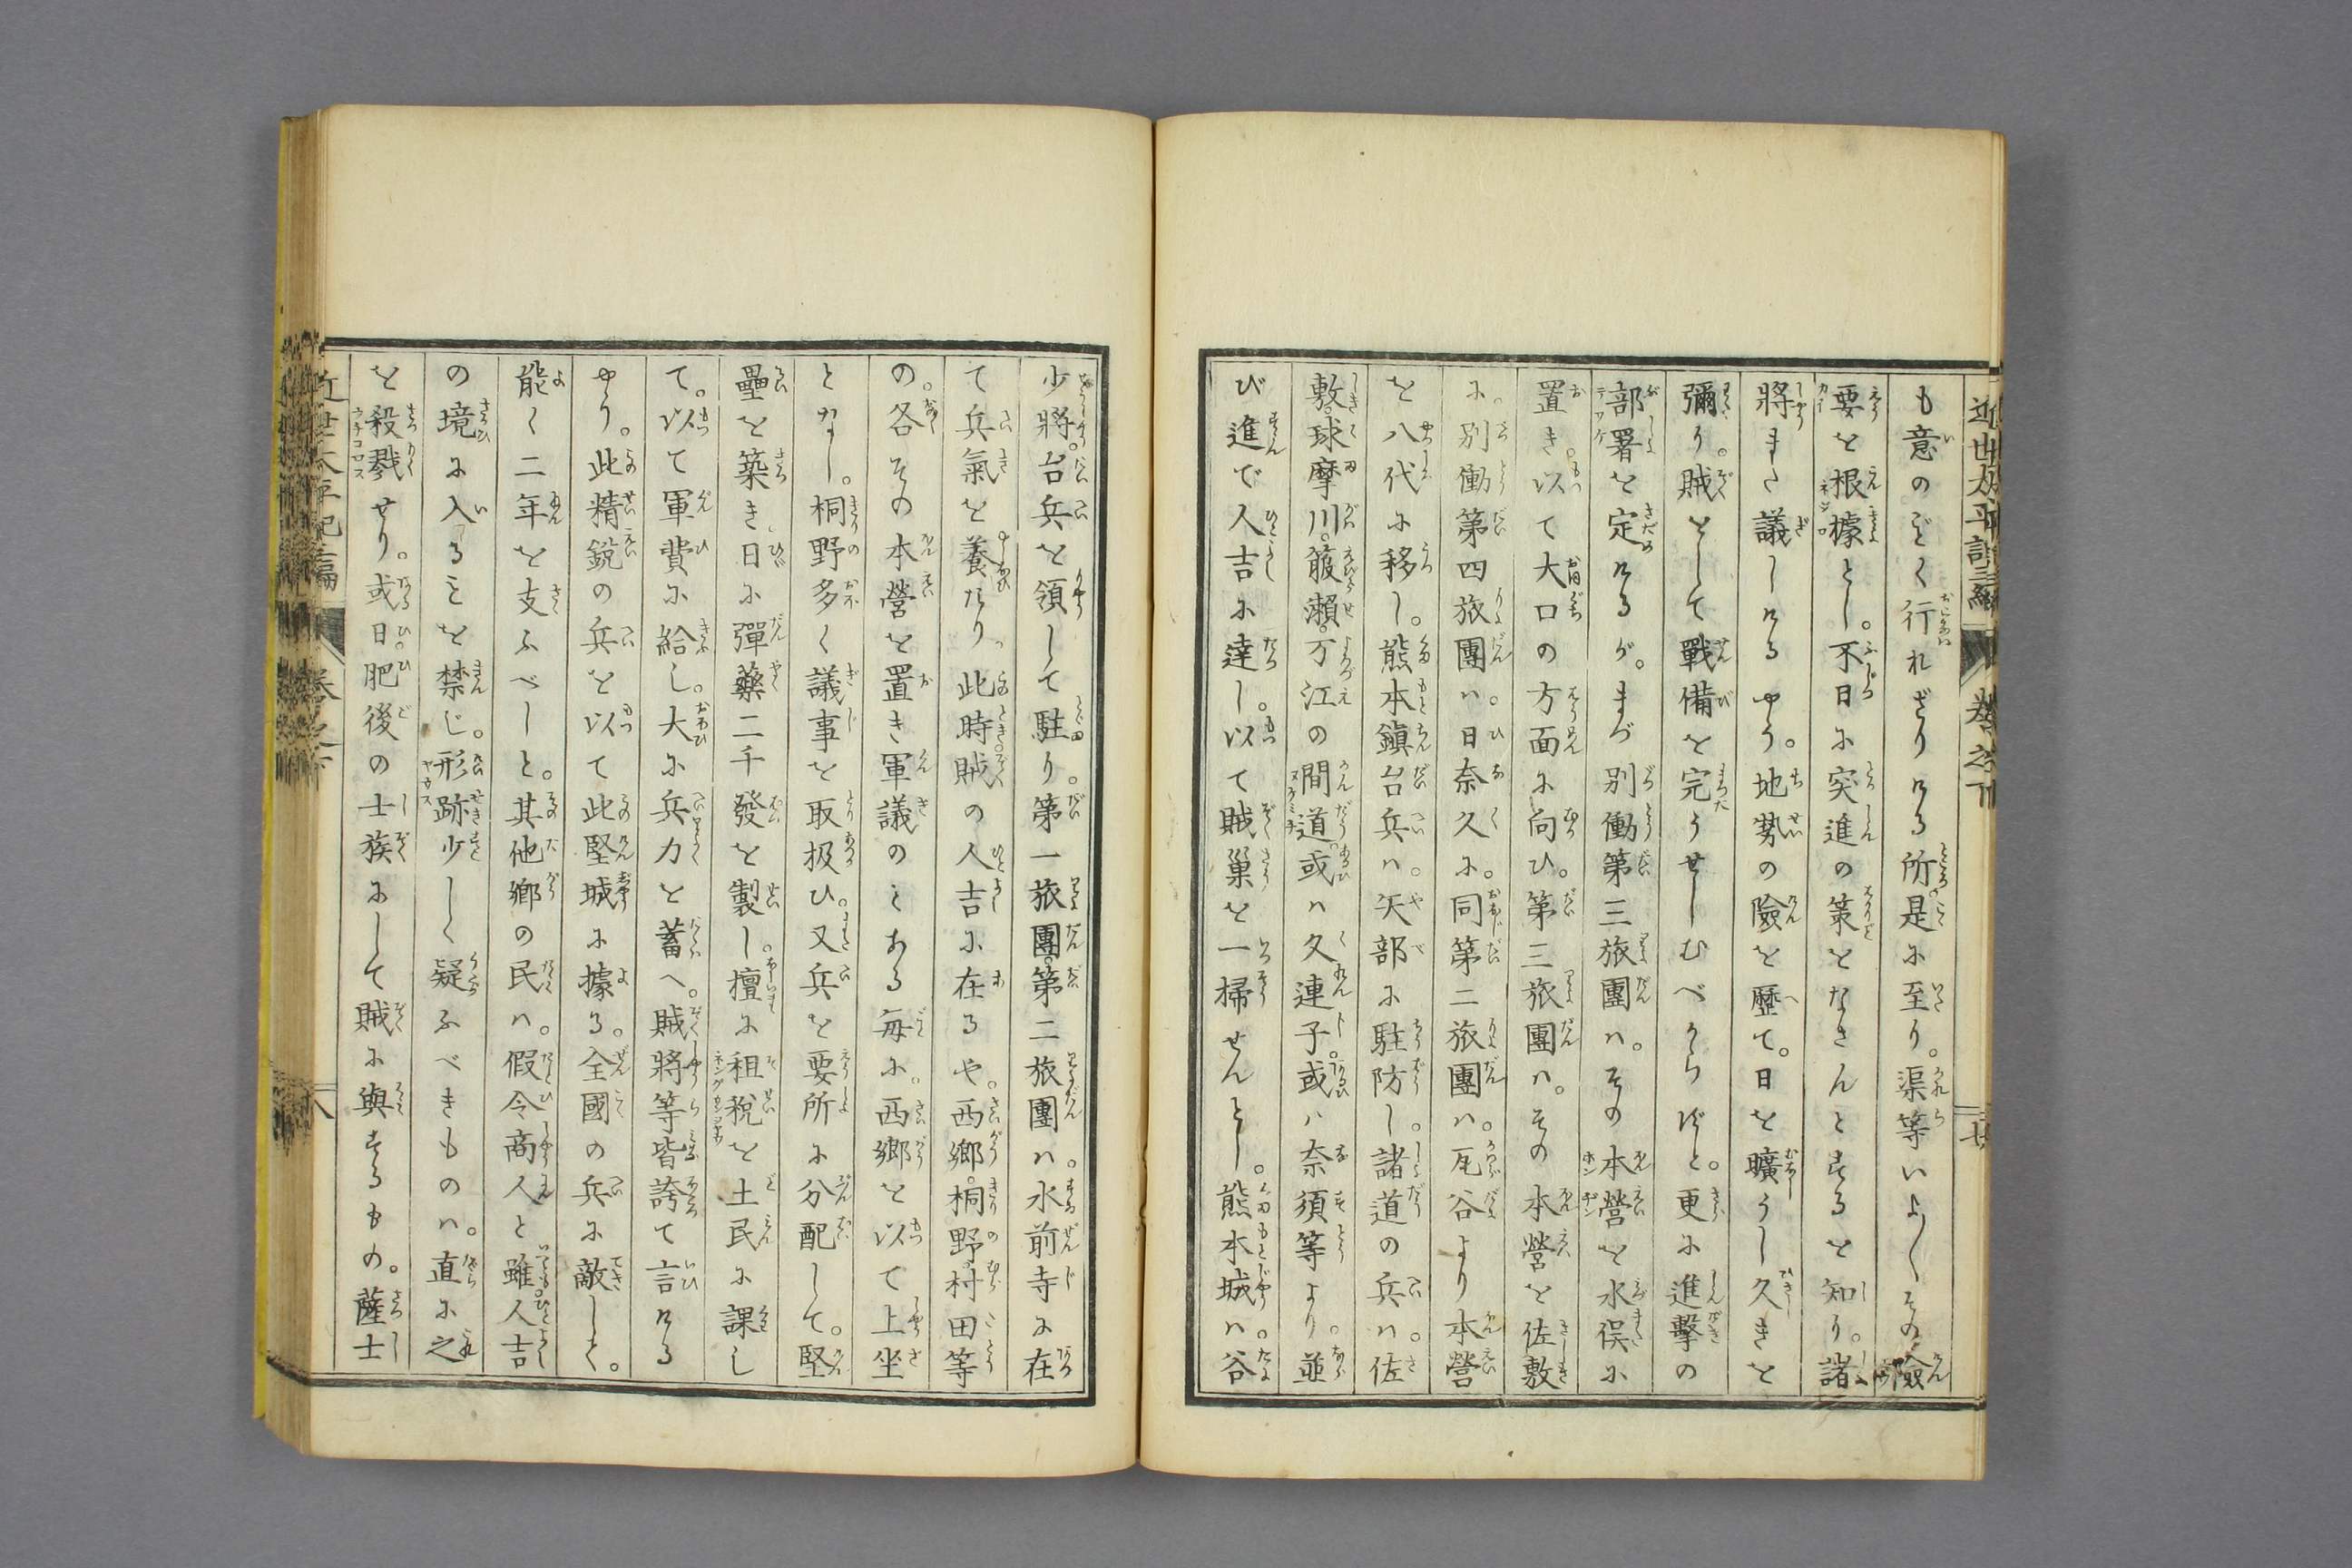 近世太平記三編
卷之下
も意のごく行れざりける所是に至り。渠等いよ〳〵その險
要を根據とし。不日に突進の策をなさんとするを知り。諸
將また議しけるやう。地勢の險を歴て。日を曠うし久きを
彌り。賊をして戰備を完うせしむべからずと。更に進擊の
部署を定めけるが。まづ別働第三旅團ハ。その本營を水俣に
置き。以て大口の方面に向ひ。第三旅團ハ。その本營を佐敷
に。別働第四旅團ハ。日奈久に。同第二旅團ハ。瓦谷より本營
を八代に移し。熊本鎭台兵ハ。矢部に駐防し。諸道の兵ハ。佐
敷。球摩川。箙瀬。万江の間道。或ハ久連子。或ハ奈須等より。並
び進で人吉に達し。以て賊巢を一掃せんとし。熊本城ハ。谷
少將。台兵を領して駐り。第一旅團。第二旅團ハ。水前寺に在
て兵氣を養たり此時賊の人吉に在るや。西郷。桐野。村田等
の。各その本營を置き軍議のことある毎に。西郷を以て上坐
となし。桐野多く議事を取扱ひ。又兵を要所に分配して。堅
壘を築き日に彈藥二千發を製し。擅に租稅を土民に課し
て。以て軍費に給し。大に兵力を蓄へ。賊將等皆誇て言ける
やう。此精銳の兵を以て此堅城に據る。全國の兵に敵しとく。
能く二年を支ふべしと。其他鄉の民ハ。假令商人と雖人吉
の境に入ることを禁じ。形跡少しく疑ふべきものハ。直に之
を殺戮せり。或日。肥後の士族にして賊に與するもの。薩士
近世太平記三編
卷之下
八